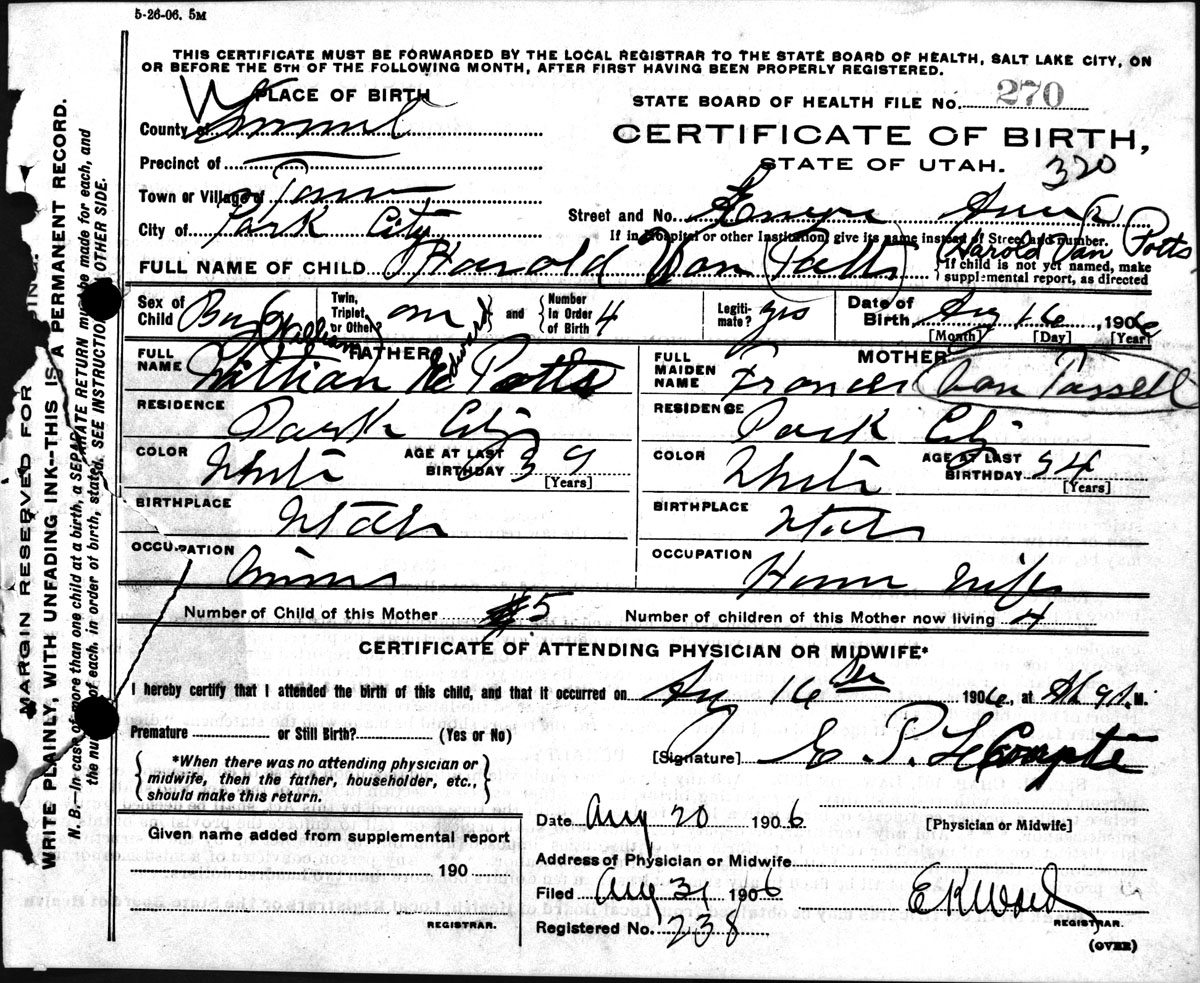 5-26-06. 5M
THIS CERTIFICATE MUST BE FORWARDED BY THE LOCAL REGISTRAR TO THE STATE BOARD OF HEALTH, SALT LAKE CITY, ON
OR BEFORE THE 5TH OF THE FOLLOWING MONTH, AFTER FIRST HAVING BEEN PROPERLY REGISTERED.
PLACE OF BIRTH
STATE BOARD OF HEALTH FILE No. 270
County of Summit
CERTIFICATE OF BIRTH,
Precinct of
STATE OF UTAH.
320
Town or Village of
Street and No. Empire
City of Park City
If in Hospital or other Institution, give its name instead of Street and number.
Harold Van Potts
FULL NAME OF CHILD Harold Van Patts
If child is not yet named, make
supplemental report, as directed
Sex of Child Boy
Twin, Triplet, or Other?
and
Number In Order of Birth 4
Legitimate? yes
Date of Birth, Aug 16, 1906
[Month] [Day] [Year]
William Edward
FATHER
FULL NAME William Potts
RESIDENCE Park City
COLOR White
AGE AT LAST BIRTHDAY 39
[Years]
BIRTHPLACE Utah
OCCUPATION Miner
MOTHER
FULL MAIDEN NAME Frances Van Tassell
RESIDENCE Park City
COLOR White
AGE AT LAST BIRTHDAY 34
[Years]
BIRTHPLACE Utah
OCCUPATION House wife
Number of Child of this Mother 5
Number of children of this Mother now living 4
CERTIFICATE OF ATTENDING PHYSICIAN OR MIDWIFE*
I hereby certify that I attended the birth of this child, and that it occurred on Aug 16th 1906, at M.
Premature or Still Birth? (Yes or No)
*When there was no attending physician or
midwife, then the father, householder, etc.,
should make this return.
[Signature] E. P. LeCompte
[Physician or Midwife]
Given name added from supplemental report
190
REGISTRAR.
Date Aug 20 1906
Address of Physician or Midwife
Filed Aug 31 1906
E K Ward
REGISTRAR.
Registered No. 238
(OVER)
MARGIN RESERVED FOR
WRITE PLAINLY, WITH UNFADING INK--THIS IS A PERMANENT RECORD.
N. B.—In case of more than one child at a birth, a SEPARATE RETURN must be made for each, and
the number of each, in order of birth, stated. SEE INSTRUCTIONS OTHER SIDE.